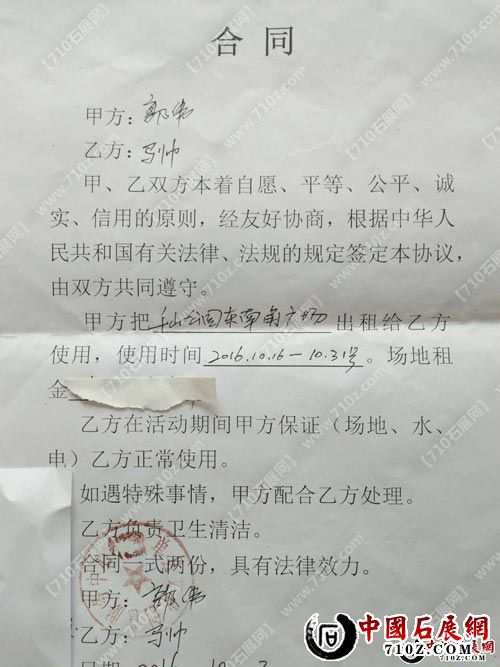 合同
甲方：郭伟
乙方：马帅
甲、乙双方本着自愿、平等、公平、诚
实、信用的原则，经友好协商，根据中华人
民共和国有关法律、法规的规定签定本协议，
由双方共同遵守。
甲方把千山公园东南角广场出租给乙方
使用，使用时间2016.10.16—10.31号。场地租
金
乙方在活动期间甲方保证（场地、水、
电）乙方正常使用。
如遇特殊事情，甲方配合乙方处理。
乙方负责卫生清洁。
合同一式两份，具有法律效力。
甲方：郭伟
乙方：马帅
日期：2016
中國石展網
710Z.COM
【710石展网】
www.710z.com